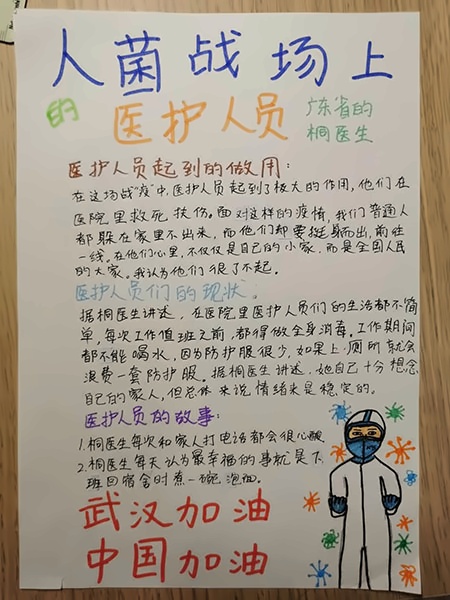 人菌战场上
的医护人员
广东省的
桐医生
医护人员起到的做用：
在这场战"疫"中，医护人员起到了极大的作用，他们在
医院里救死扶伤。面对这样的疫情，我们普通人
都躲在家里不出来，而他们却要挺身而出，前往
一线。在他们心里，不仅仅是自己的小家，而是全国人民
的大家。我认为他们很了不起。
医护人员们的现状：
据桐医生讲述，在医院里医护人员们的生活都不简
单，每次工作值班之前，都得做全身消毒。工作期间
都不能喝水，因为防护服很少，如果上厕所就会
浪费一套防护服。据桐医生讲述，她自己十分想念
自己的家人，但总体来说情绪来是稳定的。
医护人员的故事：
1.桐医生每次和家人打电话都会很心酸
2.桐医生每天认为最幸福的事就是下
班回宿舍时煮一碗泡面。
武汉加油
中国加油